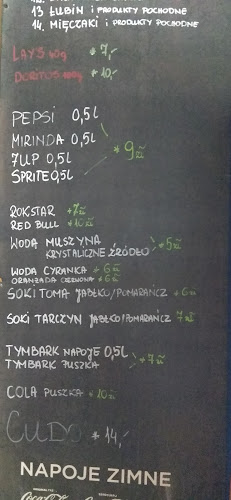 13 ŁUBIN i PRODUKTY POCHODNE
14. MIĘCZAKI i PRODUKTY POCHODNE
LAYS 40g * 7,-
DORITOS 100g * 10,-
PEPSI 0,5l
MIRINDA 0,5l
7UP 0,5l
SPRITE 0,5l
* 9 zł
ROKSTAR * 7 zł
RED BULL * 10 zł
WODA MUSZYNA
KRYSTALICZNE ŹRÓDŁO
* 5 zł
WODA CYRANKA * 6 zł
ORANŻADA CZERWONA * 6 zł
SOKI TOMA JABŁKO/POMARAŃCZ * 6 zł
SOKI TARCZYN JABŁKO/POMARAŃCZ 7 zł
TYMBARK NAPOJE 0,5l
TYMBARK PUSZKA
* 7 zł
COLA PUSZKA * 10 zł
CUDO * 14,-
NAPOJE ZIMNE
Coca-Cola